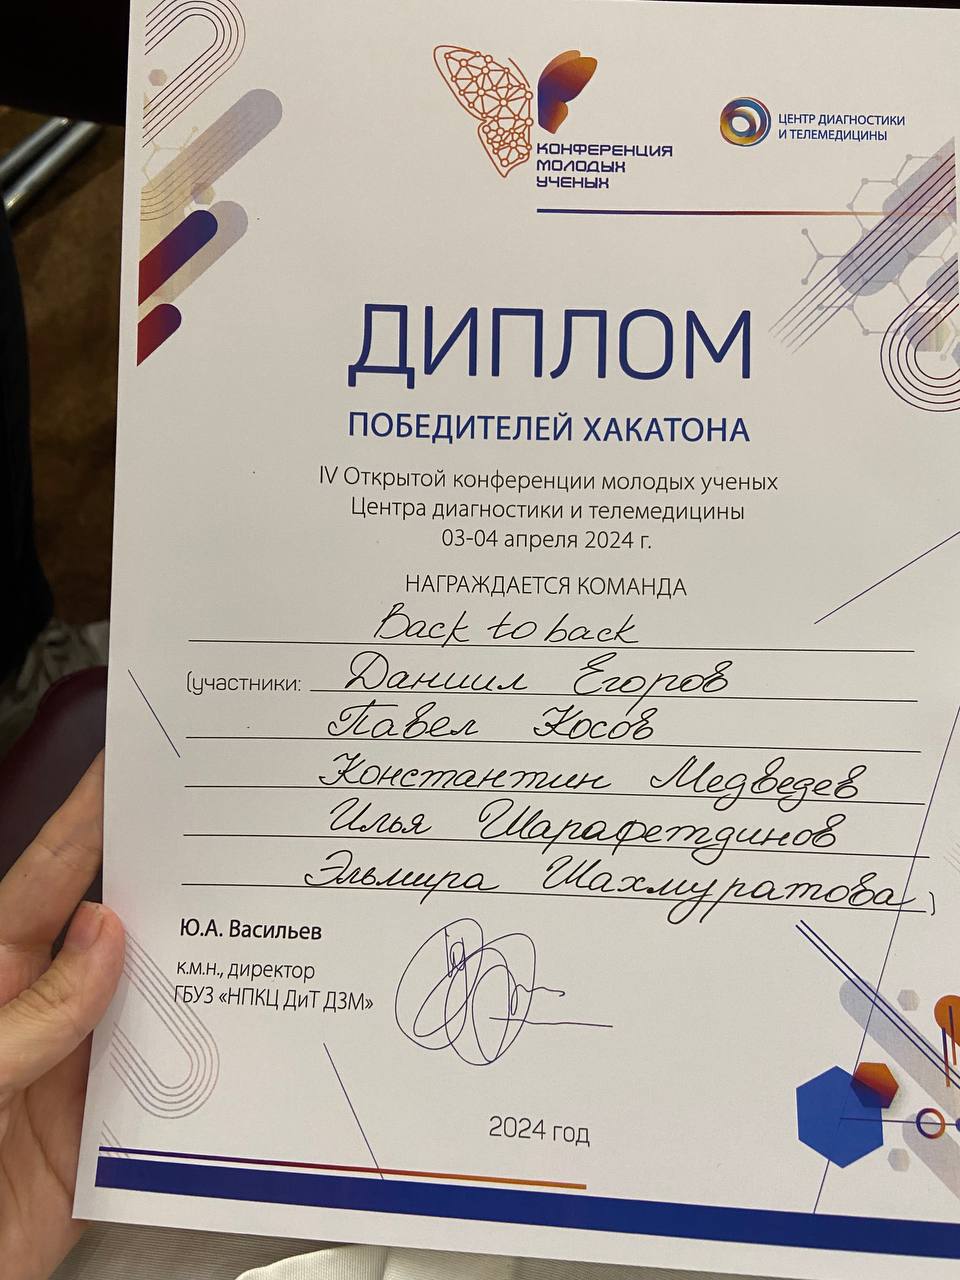 КОНФЕРЕНЦИЯ
МОЛОДЫХ
УЧЕНЫХ
ЦЕНТР ДИАГНОСТИКИ
И ТЕЛЕМЕДИЦИНЫ
ДИПЛОМ
ПОБЕДИТЕЛЕЙ ХАКАТОНА
IV Открытой конференции молодых ученых
Центра диагностики и телемедицины
03-04 апреля 2024 г.
НАГРАЖДАЕТСЯ КОМАНДА
Back to back
(участники: Даниил Егоров
Павел Косов
Константин Медведев
Илья Шарафетдинов
Эльмира Шахмуратова)
Ю.А. Васильев
к.м.н., директор
ГБУЗ «НПКЦ ДиТ ДЗМ»
2024 год